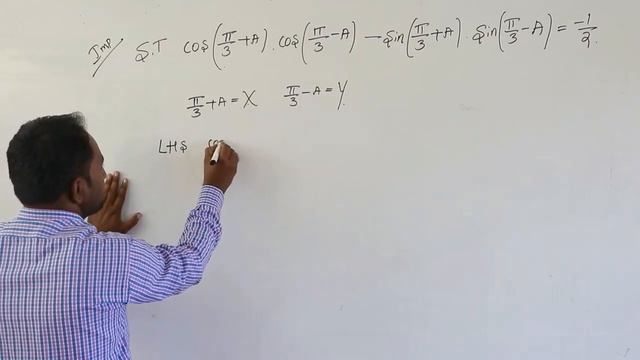 Imp S.T cos(π/3+A).cos(π/3-A)-Sin(π/3+A).Sin(π/3-A)=-1/2.
π/3+A=X π/3-A=Y
LHS